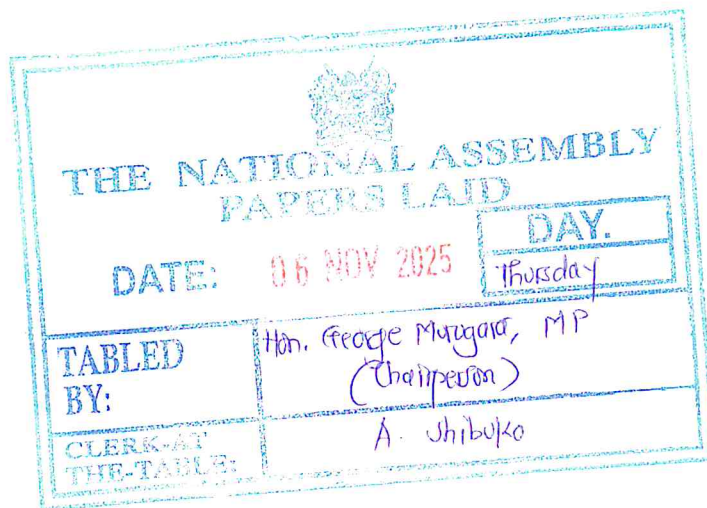 THE NATIONAL ASSEMBLY
PAPERS LAID
DATE: 06 NOV 2025
DAY.
Thursday
TABLED BY:
Hon. George Murugara, MP
(Chairperson)
CLERK-AT THE-TABLE:
A. Shibuko